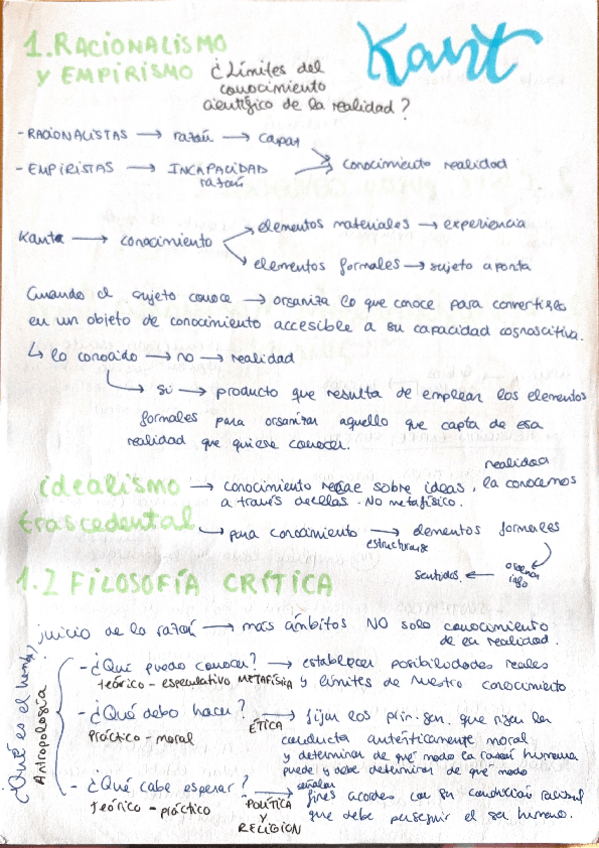 Kant
1. RACIONALISMO
Y EMPIRISMO ¿Límites del
conocimiento
científico de la realidad?
- RACIONALISTAS → razón → capaz
- EMPIRISTAS → INCAPACIDAD → conocimiento realidad
razón
Kant → conocimiento
elementos materiales → experiencia
elementos formales → sujeto aporta
Cuando el sujeto conoce → organiza lo que conoce para convertirlo
en un objeto de conocimiento accesible a su capacidad cognoscitiva.
↳ lo conocido → no → realidad
↳ sí → producto que resulta de emplear los elementos
formales para organizar aquello que capta de esa
realidad que quiere conocer.
idealismo → conocimiento recae sobre ideas, realidad la conocemos
trascedental a través de ellas. No metafísico.
↳ para conocimiento → elementos formales
estructurar
sentidos ← ordenan info
1.2 FILOSOFÍA CRÍTICA
juicio de la razón → más ámbitos NO solo conocimiento
de la realidad.
¿Qué es el hombre?
Antropología
- ¿Qué puedo conocer? → establecer posibilidades reales
teórico - especulativo METAFÍSICA y límites de nuestro conocimiento
- ¿Qué debo hacer? → fijar los prin. gen. que rijan la
Práctico - moral ÉTICA conducta auténticamente moral
y determinar de qué modo la razón humana
puede y debe determinar de qué modo
- ¿Qué cabe esperar? → señalar
fines acordes con su condición racional
teórico - práctico POLÍTICA Y RELIGION que debe perseguir el ser humano.